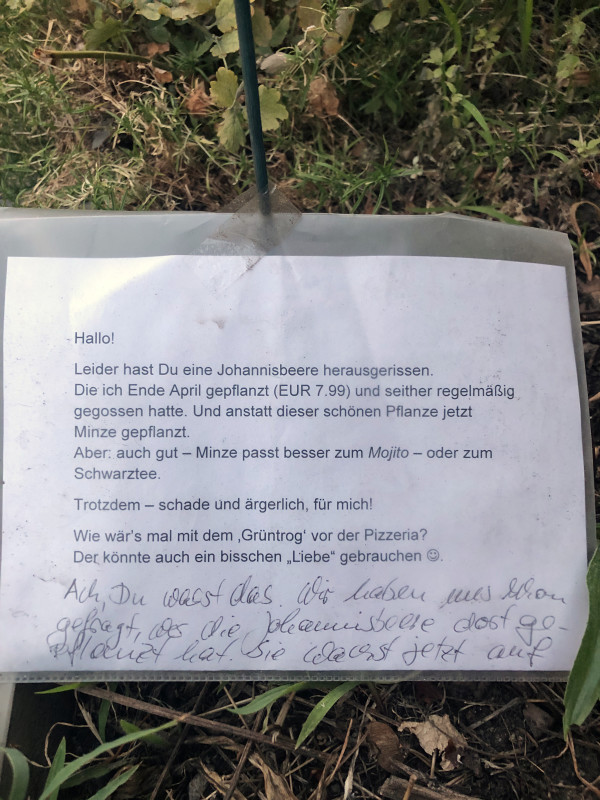 Hallo!
Leider hast Du eine Johannisbeere herausgerissen.
Die ich Ende April gepflanzt (EUR 7.99) und seither regelmäßig
gegossen hatte. Und anstatt dieser schönen Pflanze jetzt
Minze gepflanzt.
Aber: auch gut – Minze passt besser zum Mojito – oder zum
Schwarztee.
Trotzdem – schade und ärgerlich, für mich!
Wie wär's mal mit dem ‚Grüntrog' vor der Pizzeria?
Der könnte auch ein bisschen „Liebe" gebrauchen ☺.
Ach, Du warst das. Wir haben uns schon
gefragt, wer die Johannisbeere dort ge-
pflanzt hat. Sie wächst jetzt auf